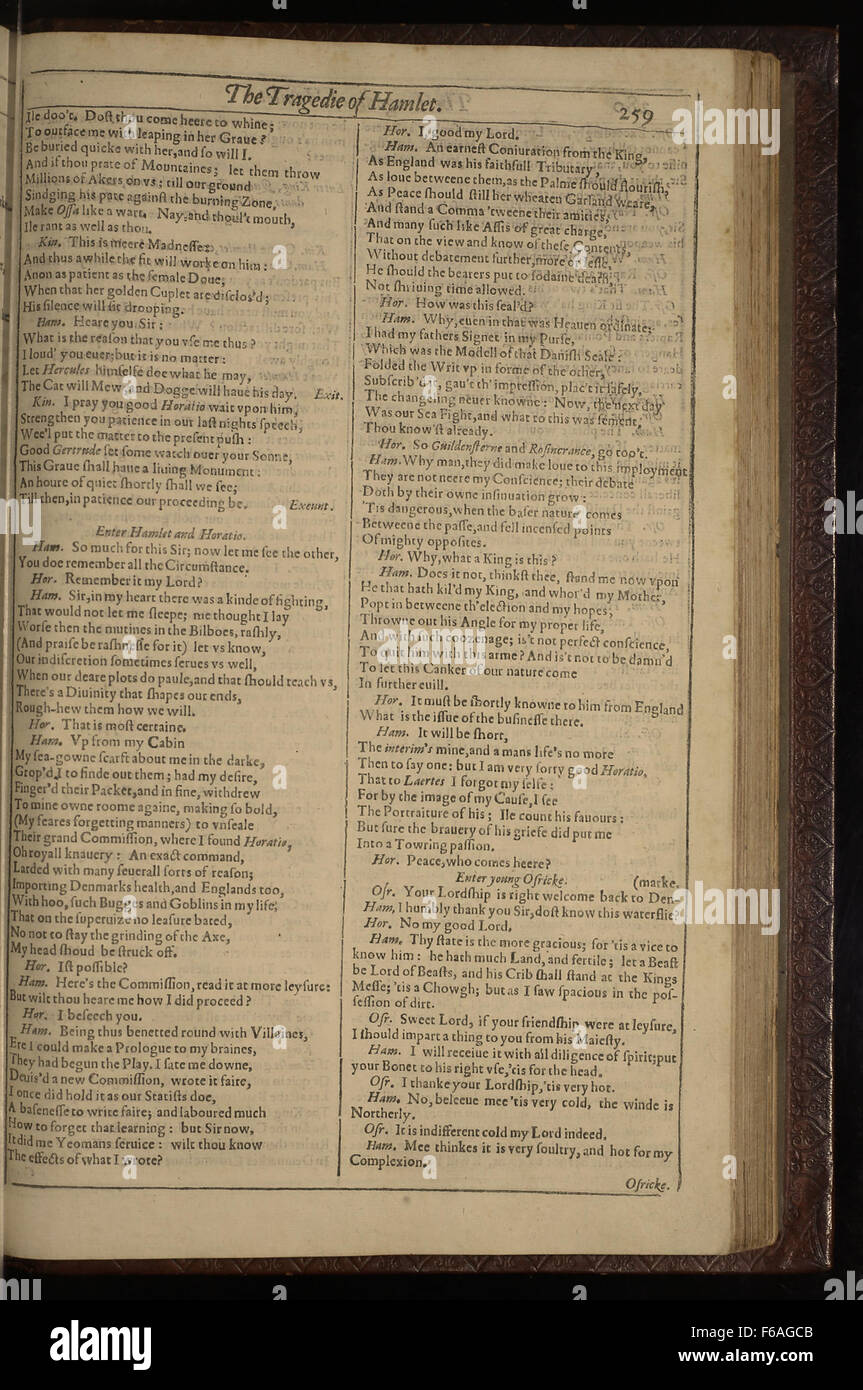 The Tragedie of Hamlet. 259
Ile doo't. Doſt thou come heere to whine;
To outface me with leaping in her Graue?
Be buried quicke with her, and ſo will I.
And if thou prate of Mountaines; let them throw
Millions of Akers on vs; till our ground
Sindging his pate againſt the burning Zone,
Make Oſſa like a wart. Nay, and thoul't mouth,
Ile rant as well as thou.
Kin. This is meere Madneſſe:
And thus awhile the fit will worke on him:
Anon as patient as the female Doue,
When that her golden Cuplet are diſclos'd;
His ſilence will ſit drooping.
Ham. Heare you Sir:
What is the reaſon that you vſe me thus?
I lou'd you euer; but it is no matter:
Let Hercules himſelfe doe what he may,
The Cat will Mew, and Dogge will haue his day. Exit.
Kin. I pray you good Horatio wait vpon him,
Strengthen you patience in our laſt nights ſpeech,
Wee'l put the matter to the preſent puſh:
Good Gertrude ſet ſome watch ouer your Sonne,
This Graue ſhall haue a liuing Monument:
An houre of quiet ſhortly ſhall we ſee;
Till then, in patience our proceeding be. Exeunt.
Enter Hamlet and Horatio.
Ham. So much for this Sir; now let me ſee the other,
You doe remember all the Circumſtance.
Hor. Remember it my Lord?
Ham. Sir, in my heart there was a kinde of fighting,
That would not let me ſleepe; me thought I lay
Worſe then the mutines in the Bilboes, raſhly,
(And praiſe be raſhneſſe for it) let vs know,
Our indiſcretion ſometimes ſerues vs well,
When our deare plots do paule, and that ſhould teach vs,
There's a Diuinity that ſhapes our ends,
Rough-hew them how we will.
Hor. That is moſt certaine.
Ham. Vp from my Cabin
My ſea-gowne ſcarft about me in the darke,
Grop'd I to finde out them; had my deſire,
Finger'd their Packet, and in fine, withdrew
To mine owne roome againe, making ſo bold,
(My feares forgetting manners) to vnſeale
Their grand Commiſſion, where I found Horatio,
Oh royall knauery: An exact command,
Larded with many ſeuerall ſorts of reaſon;
Importing Denmarks health, and Englands too,
With hoo, ſuch Bugges and Goblins in my life;
That on the ſuperuize no leaſure bated,
No not to ſtay the grinding of the Axe,
My head ſhoud be ſtruck off.
Hor. Iſt poſſible?
Ham. Here's the Commiſſion, read it at more leyſure:
But wilt thou heare me how I did proceed?
Hor. I beſeech you.
Ham. Being thus benetted round with Villaines,
Ere I could make a Prologue to my braines,
They had begun the Play. I ſate me downe,
Deuis'd a new Commiſſion, wrote it faire,
I once did hold it as our Statiſts doe,
A baſeneſſe to write faire; and laboured much
How to forget that learning: but Sir now,
It did me Yeomans ſeruice: wilt thou know
The effects of what I wrote?
Hor. I, good my Lord.
Ham. An earneſt Coniuration from the King,
As England was his faithfull Tributary,
As loue betweene them, as the Palme ſhould flouriſh,
As Peace ſhould ſtill her wheaten Garland weare,
And ſtand a Comma 'tweene their amities,
And many ſuch like Aſſis of great charge,
That on the view and know of theſe Contents,
Without debatement further, more or leſſe,
He ſhould the bearers put to ſodaine death,
Not ſhriuing time allowed.
Hor. How was this ſeal'd?
Ham. Why, euen in that was Heauen ordinate;
I had my fathers Signet in my Purſe,
Which was the Modell of that Daniſh Seale:
Folded the Writ vp in forme of the other,
Subſcrib'd it, gau't th' impreſſion, plac't it ſafely,
The changeling neuer knowne: Now, the next day
Was our Sea Fight, and what to this was ſement,
Thou know'ſt already.
Hor. So Guildenſterne and Roſincrance, go too't.
Ham. Why man, they did make loue to this imployment
They are not neere my Conſcience; their debate
Doth by their owne inſinuation grow:
'Tis dangerous, when the baſer nature comes
Betweene the paſſe, and fell incenſed points
Of mighty oppoſites.
Hor. Why, what a King is this?
Ham. Does it not, thinkſt thee, ſtand me now vpon
He that hath kil'd my King, and whor'd my Mother,
Popt in betweene th'election and my hopes,
Throwne out his Angle for my proper life,
And with ſuch coozenage; is't not perfect conſcience,
To quit him with this arme? And is't not to be damn'd
To let this Canker of our nature come
In further euill.
Hor. It muſt be ſhortly knowne to him from England
What is the iſſue of the buſineſſe there.
Ham. It will be ſhort,
The interim's mine, and a mans life's no more
Then to ſay one: but I am very ſorry good Horatio,
That to Laertes I forgot my ſelfe;
For by the image of my Cauſe, I ſee
The Portraiture of his; Ile count his fauours:
But ſure the brauery of his griefe did put me
Into a Towring paſſion.
Hor. Peace, who comes heere?
Enter young Oſricke. (marke.
Oſr. Your Lordſhip is right welcome back to Den-
Ham. I humbly thank you Sir, doſt know this waterflie?
Hor. No my good Lord.
Ham. Thy ſtate is the more gracious; for 'tis a vice to
know him: he hath much Land, and fertile; let a Beaſt
be Lord of Beaſts, and his Crib ſhall ſtand at the Kings
Meſſe; 'tis a Chowgh; but as I ſaw ſpacious in the poſ-
ſeſſion of dirt.
Oſr. Sweet Lord, if your friendſhip were at leyſure,
I ſhould impart a thing to you from his Maieſty.
Ham. I will receiue it with all diligence of ſpirit; put
your Bonet to his right vſe, 'tis for the head.
Oſr. I thanke your Lordſhip, 'tis very hot.
Ham. No, beleeue mee 'tis very cold, the winde is
Northerly.
Oſr. It is indifferent cold my Lord indeed.
Ham. Mee thinkes it is very ſoultry, and hot for my
Complexion.
Oſricke.
alamy
Image ID: F6AGCB
www.alamy.com